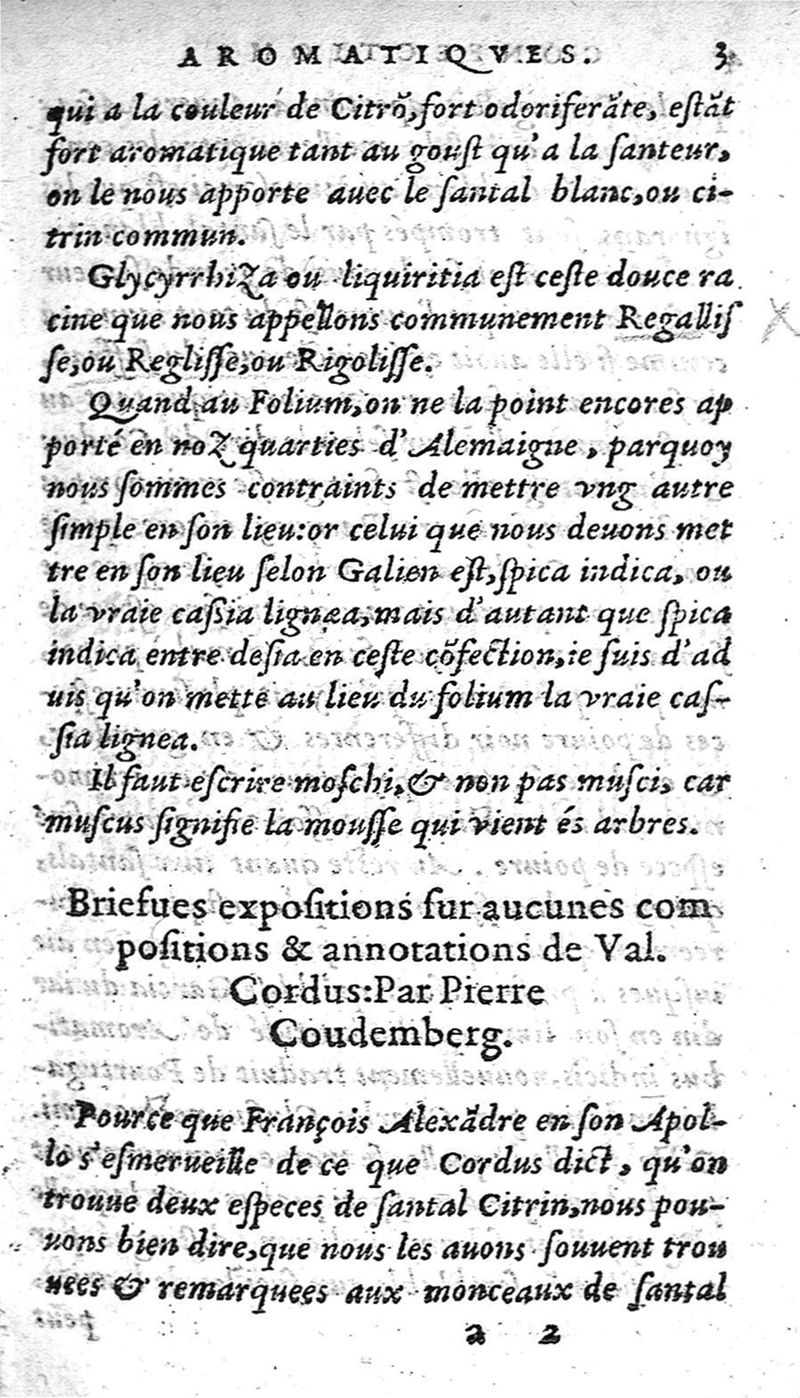 AROMATIQVES. 3
qui a la couleur de Citrõ, fort odoriferãte, eſtãt
fort aromatique tant au gouſt qu'a la ſanteur,
on le nous apporte auec le ſantal blanc, ou ci-
trin commun.
Glycyrrhiza ou liquiritia eſt ceſte douce ra
cine que nous appellons communement Regalliſ
ſe, ou Regliſſe, ou Rigoliſſe.
Quand au Folium, on ne la point encores ap
porté en noz quarties d'Alemaigne, parquoy
nous ſommes contraints de mettre vng autre
ſimple en ſon lieu: or celui que nous deuons met
tre en ſon lieu ſelon Galien eſt, ſpica indica, ou
la vraie caſsia lignea, mais d'autant que ſpica
indica entre deſia en ceſte cõfection, ie ſuis d'ad
uis qu'on mette au lieu du folium la vraie caſ-
ſia lignea.
Il faut eſcrire moſchi, & non pas muſci, car
muſcus ſignifie la mouſſe qui vient és arbres.
Briefues expoſitions ſur aucunes com
poſitions & annotations de Val.
Cordus: Par Pierre
Coudemberg.
Pource que François Alexãdre en ſon Apol-
lo s'eſmerueille de ce que Cordus dict, qu'on
trouue deux eſpeces de ſantal Citrin, nous pou-
uons bien dire, que nous les auons ſouuent trou
uees & remarquees aux monceaux de ſantal
a 2